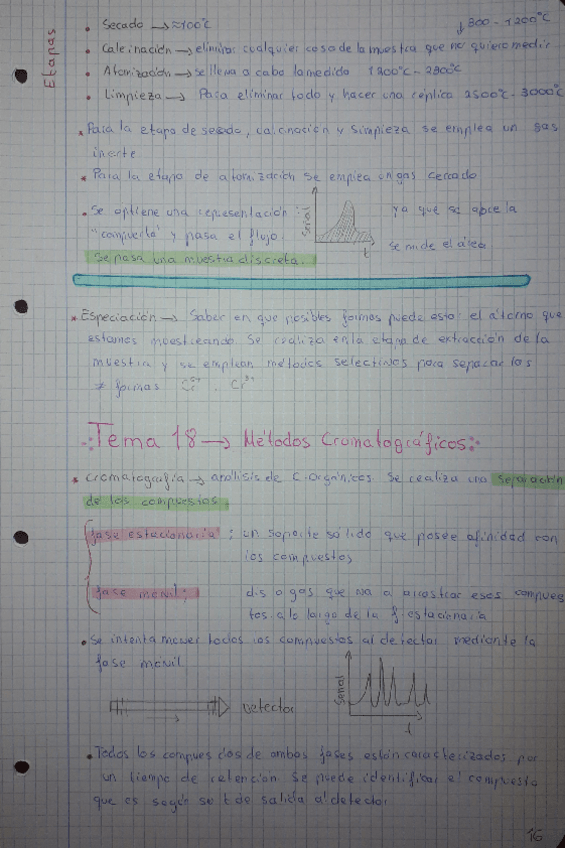 Etapas
• Secado → ≈100°C
↓300 - 1200°C
• Calcinación → eliminar cualquier cosa de la muestra que no quiero medir
• Atomización → se lleva a cabo la medida 1800°C-2800°C
• Limpieza → Para eliminar todo y hacer una réplica 2500°C-3000°C
* Para la etapa de secado, calcinación y limpieza se emplea un gas
inerte
* Para la etapa de atomización se emplea un gas cerrado
• Se obtiene una representación:
"compuerta" y pasa el flujo.
Se pasa una muestra discreta.
Señal
t
ya que se abre la
se mide el área
* Especiación → Saber en que posibles formas puede estar el átomo que
estamos muestreando. Se realiza en la etapa de extracción de la
muestra y se emplean métodos selectivos para separar las
≠ formas
Tema 18 → Métodos Cromatográficos:
* Cromatografía → análisis de C. Orgánicos. Se realiza una separación
de los compuestos
fase estacionaria: un soporte sólido que posee afinidad con
los compuestos
fase móvil: dis o gas que va a arrastrar esos compues
tos a lo largo de la f. estacionaria
• Se intenta mover todos los compuestos al detector mediante la
fase móvil
Detector
Señal
t
• Todos los compuestos de ambas fases están caracterizados por
un tiempo de retención. Se puede identificar el compuesto
que es según se t de salida al detector
16